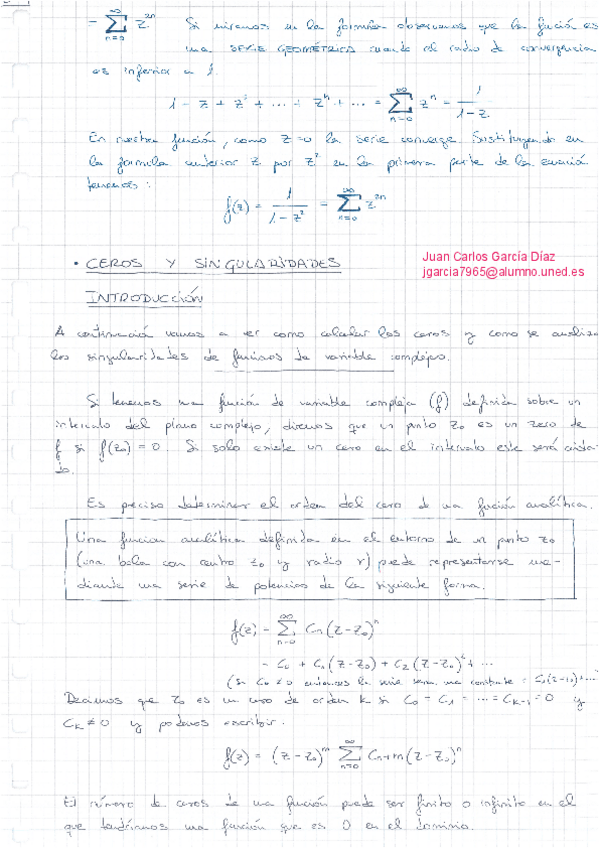 = ∑_{n=0}^{∞} z^{2n} Si miramos en la formula observamos que la función es
una SERIE GEOMÉTRICA cuando el radio de convergencia
es inferior a 1.
1 - z + z² + ... + z^n + ... = ∑_{n=0}^{∞} z^n = 1/(1-z)
En nuestra función, como z=0 la serie converge. Sustituyendo en
la formula anterior z por z² en la primera parte de la ecuación
tenemos:
f(z) = 1/(1-z²) = ∑_{n=0}^{∞} z^{2n}
Juan Carlos García Díaz
jgarcia7965@alumno.uned.es
• CEROS Y SINGULARIDADES
INTRODUCCIÓN
A continuación vamos a ver como calcular los ceros y como se analiza
las singularidades de funciones de variable compleja.
Si tenemos una función de variable compleja (f) definida sobre un
intervalo del plano complejo, diremos que un punto z₀ es un zero de
f si f(z₀) = 0. Si solo existe un cero en el intervalo este será aisla-
do.
Es preciso determinar el orden del cero de una función analítica.
Una funcion analítica definida en el entorno de un punto z₀
(una bola con centro z₀ y radio r) puede representarse me-
diante una serie de potencias de la siguiente forma.
f(z) = ∑_{n=0}^{∞} Cn(z-z₀)^n
= C₀ + C₁(z-z₀) + C₂(z-z₀)² + ...
(si C₀ ≠ 0 entonces la serie sera una constante
Decimos que z₀ es un cero de orden k si C₀ = C₁ = ... = C_{k-1} = 0 y
C_k ≠ 0 y podemos escribir.
f(z) = (z-z₀)^m ∑_{n=0}^{∞} C_{n+m}(z-z₀)^n
El número de ceros de una función puede ser finito o infinito en el
que tendríamos una función que es 0 en el dominio.